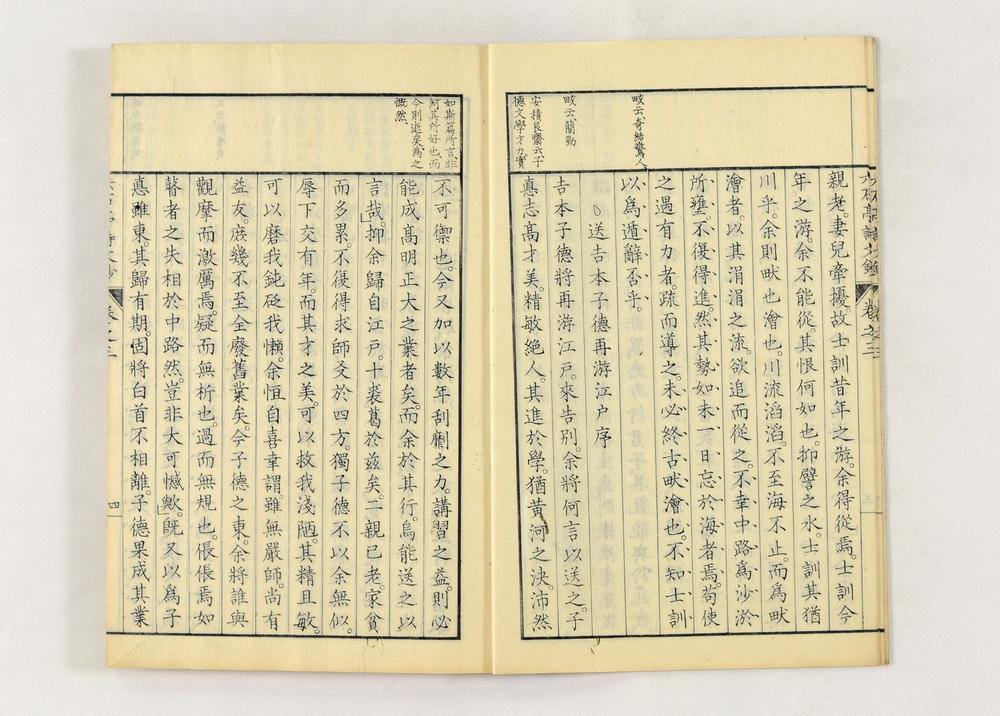 畡云、奇結驚人
畡云、簡勁
安積艮齋云、子
德文學才力、實
親老。妻兒牽擾。故士訓昔年之游。余得從焉。士訓今
年之游。余不能從。其恨何如也。抑譬之水。士訓其猶
川乎。余則畎也澮也。川流滔滔。不至海不止。而爲畎
澮者。以其涓涓之流。欲追而從之。不幸中路爲沙淤
所壅。不復得進。然其勢如未一日忘於海者焉。苟使
之遇有力者。疏而導之。未必終古畎澮也。不知士訓
以爲遁辭否乎。
送吉本子德再游江戶序
吉本子德將再游江戶。來告別。余將何言以送之。子
悳志高才美。精敏絕人。其進於學。猶黃河之決。沛然
如斯篇所言、非
阿其所好也、而
今則逝矣、爲之
慨然、
不可禦也。今又加以數年刮劘之力。講習之益。則必
能成高明正大之業者矣。而余於其行。烏能送之以
言哉。抑余歸自江戶。十裘葛於兹矣。二親已老。家貧
而多累。不復得求師友於四方。獨子德不以余無似。
辱下交有年。而其才之美。可以救我淺陋。其精且敏。
可以磨我鈍砭我懶。余恒自喜幸謂雖無嚴師。尚有
益友。庶幾不至全廢舊業矣。今子德之東。余將誰與
觀摩而激厲焉。疑而無析也。過而無規也。倀倀焉如
瞽者之失相於中路然。豈非大可憾歟。旣又以爲子
悳雖東。其歸有期。固將白首不相離。子德果成其業
四